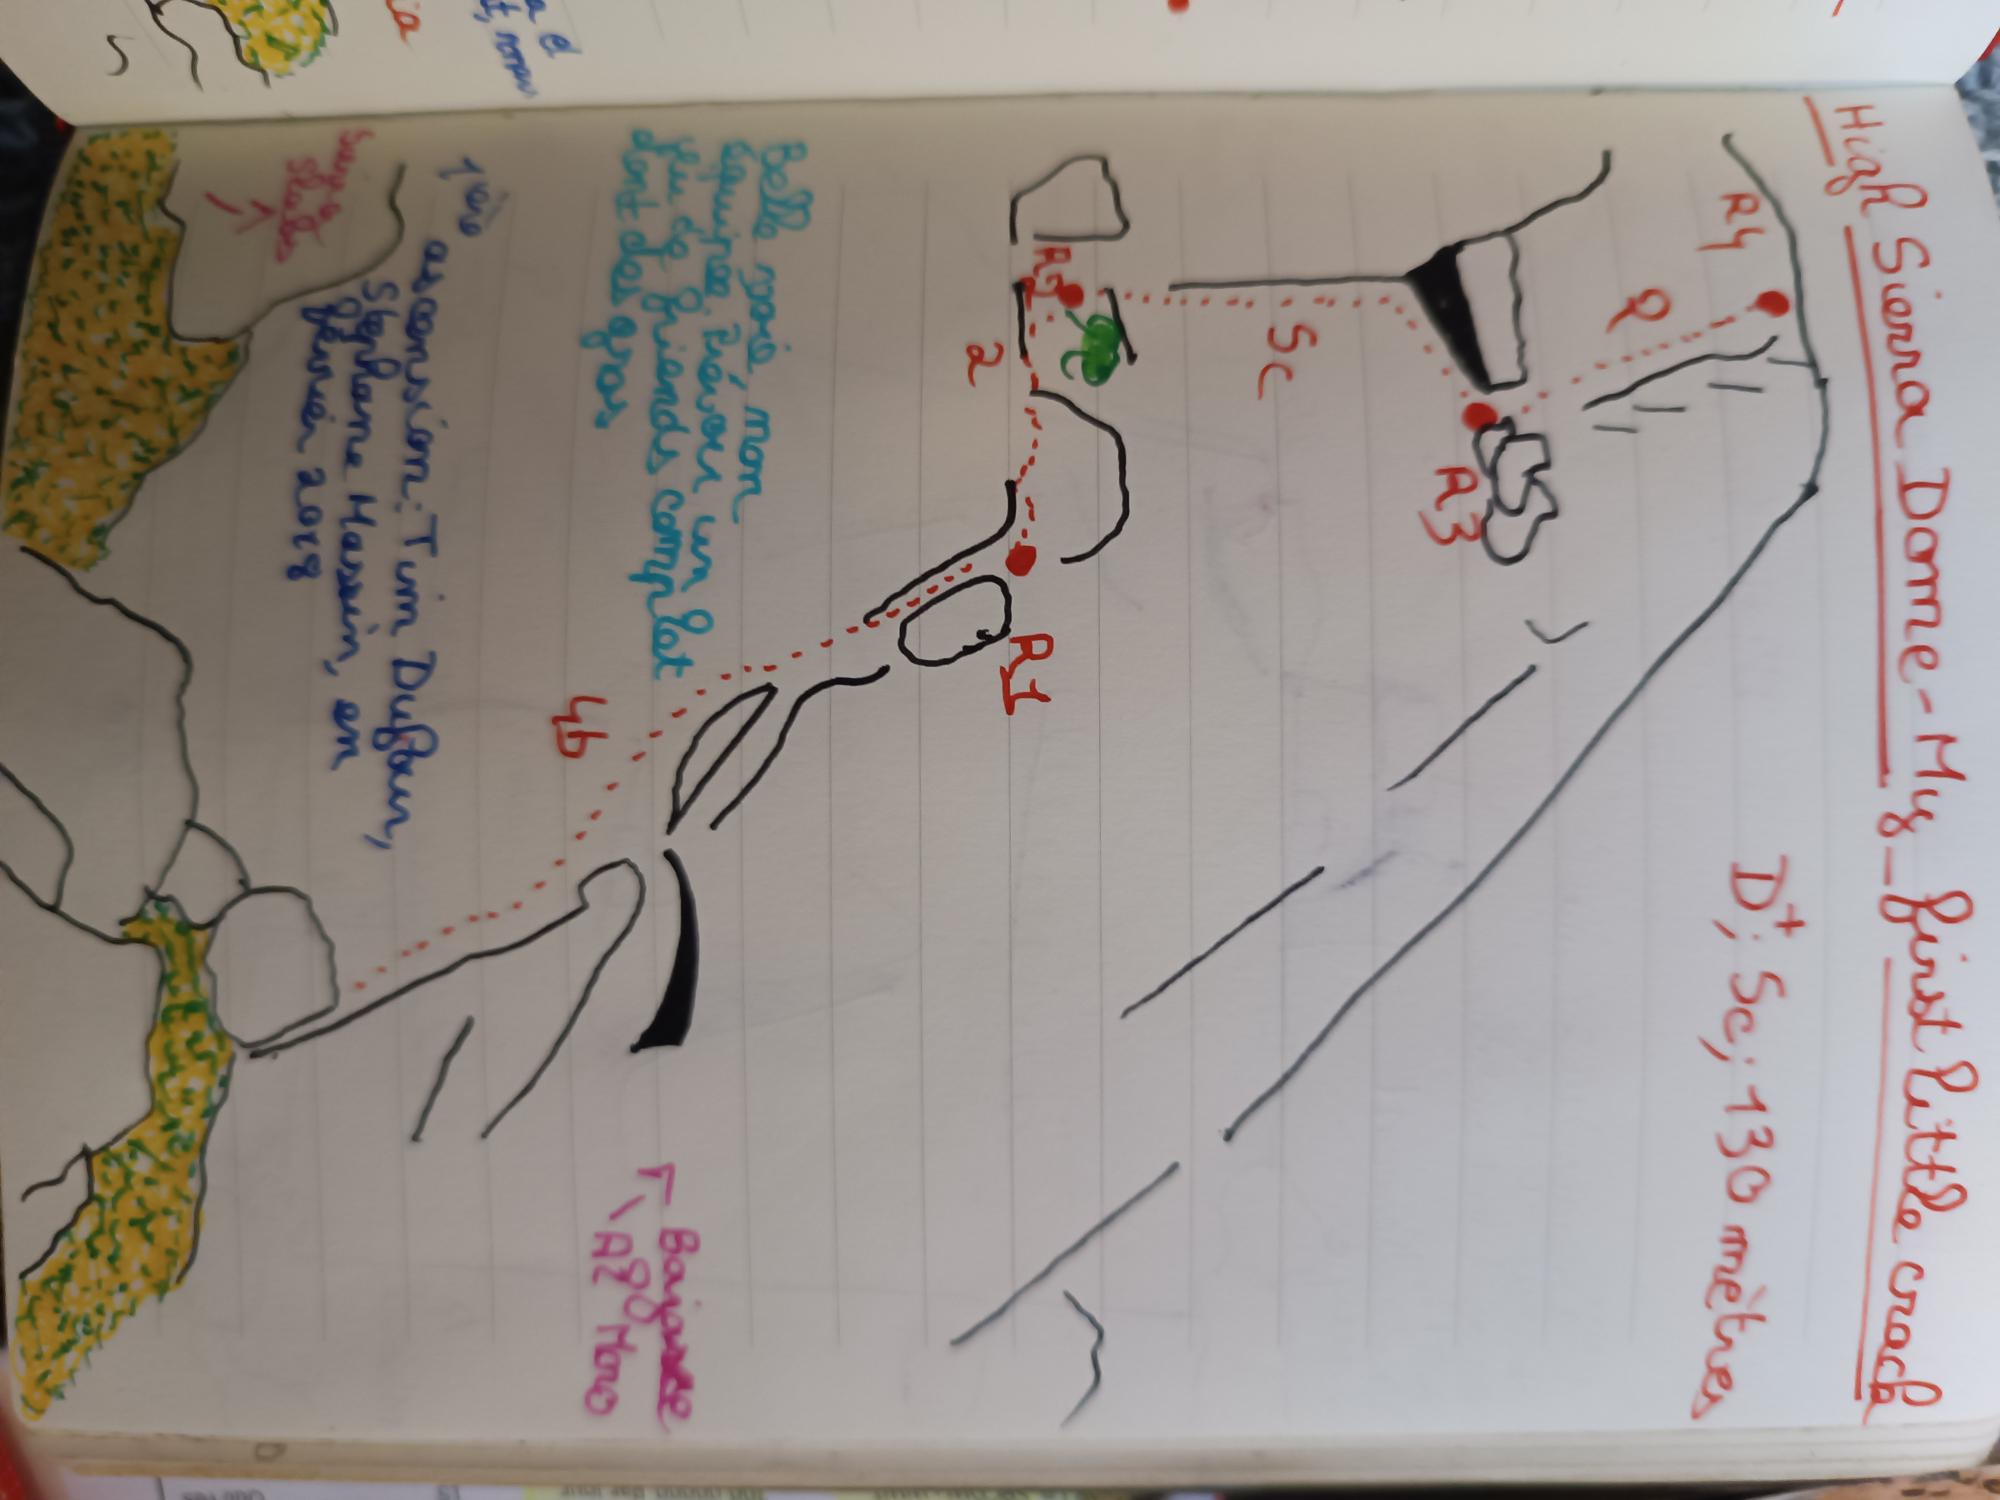 High Sierra Dome - My first little crack
D+; 5c; 130 mètres
R4
2
R3
5c
R2
2
R1
Belle voie, non
équipée. Prévoir un
jeu de friends complet
dont des gros
4b
Baignoire
Al Hono
1ère ascension: Tim Dufour,
Stéphane Massin, en
février 2018
Slabs